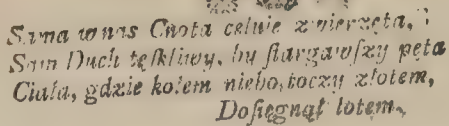 Sama w nas Cnota celuie zwierzęta,
Sam Duch tęſkliwy, by ſtargawſzy pęta
Ciała, gdzie kołem niebo, toczy złotem,
Doſięgnął lotem,